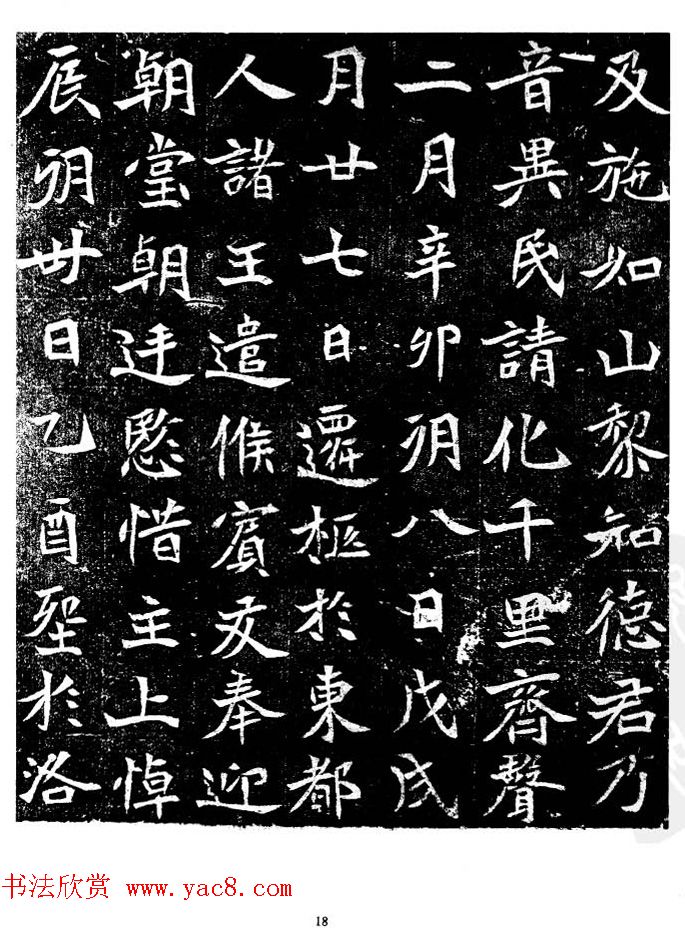 及施如山黎知德君乃
音異民請化千里齊聲
二月辛卯朔八日戊戌
月廿七日遷柩於東都
人諸王遣候賓友奉迎
朝堂朝廷愍惜主上悼
辰朔丗日乙酉葬於洛
书法欣赏 www.yac8.com
18